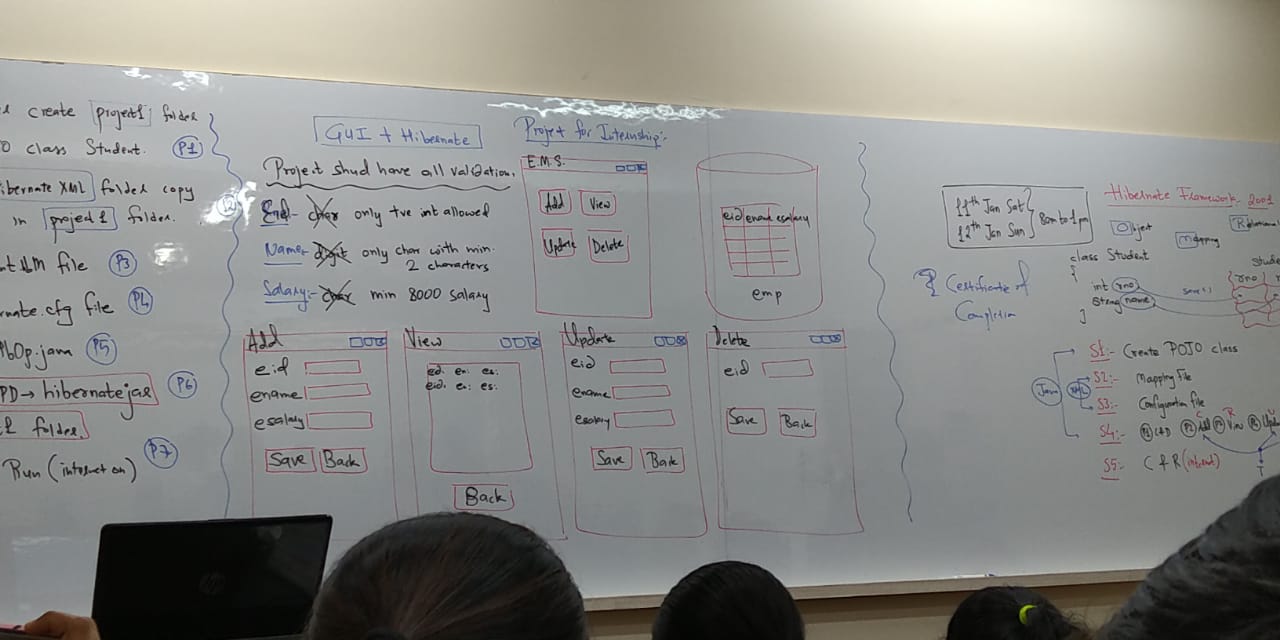 create project1 folder
class Student. P1
Hibernate XML folder copy
in project 1 folder.
file P3
.cfg file P4
Op.java P5
PD → hibernatejar P6
folder.
Run (internet on) P7
GUI + Hibernate
Project shud have all validation.
12
Eid - char only +ve int allowed
Name - Digit only char with min.
2 characters
Salary:- char min 8000 salary
Project for Internship:-
E.M.S.
Add View
Update Delete
eid ename esalary
emp
Add
eid
ename
esalary
Save Back
View
eid: en: es:
eid: en: es:
Back
Update
eid
ename
esalary
Save Back
Delete
eid
Save Back
11th Jan Sat
12th Jan Sun
8am to 1pm
Certificate of
Completion
Hibernate Framework 2001
Object
Mapping
Relational
class Student
{
int rno
String name
}
save()
rno
S1:- Create POJO class
S2:- Mapping file
S3:- Configuration file
S4:- P1 C+D P2 Add View Update
S5:- C & R (internet)
Java XML
hp